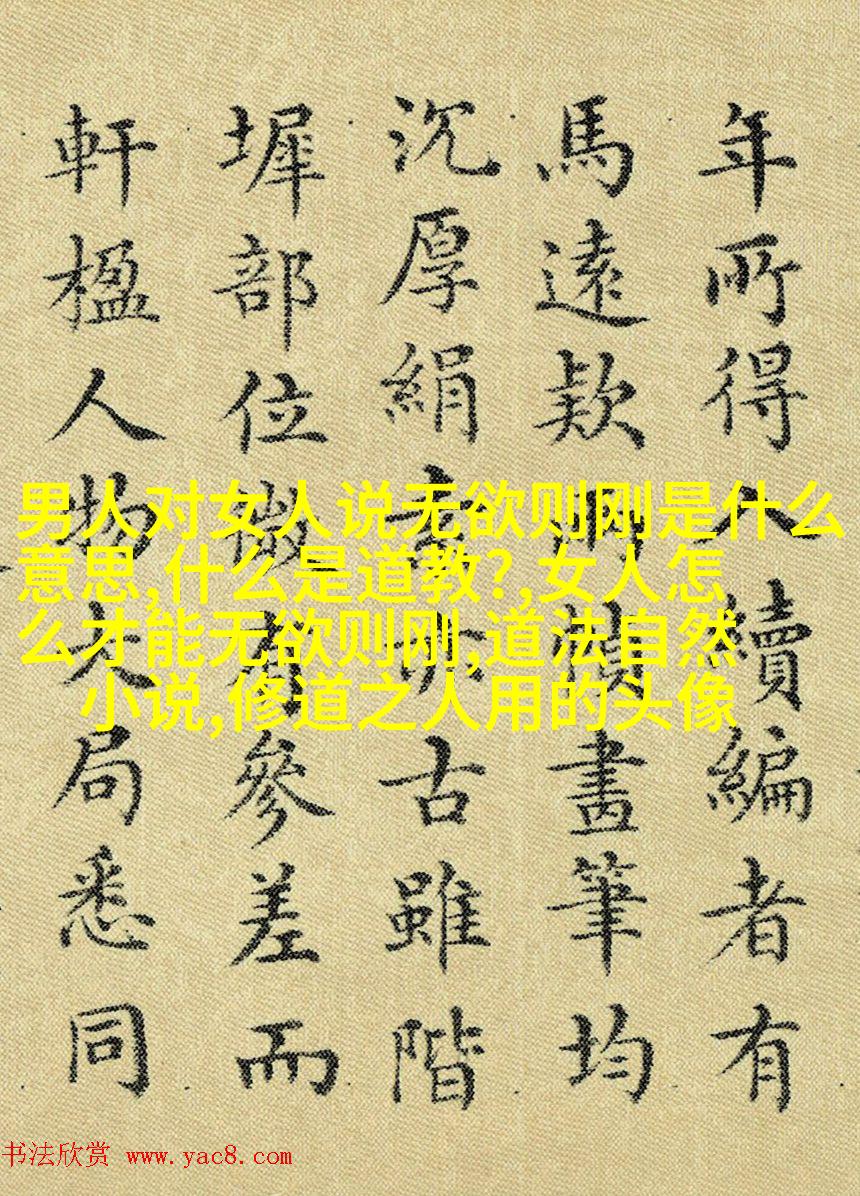 年所得入續編者有
馬遠款兩畫筆均
沉厚絹素亦古雖階
墀部位微有參差而
軒楹人物大局悉同
男人对女人说无欲则刚是什么
意思,什么是道教?,女人怎
么才能无欲则刚,道法自然
小说,修道之人用的头像
书法欣赏 www.yac8.com